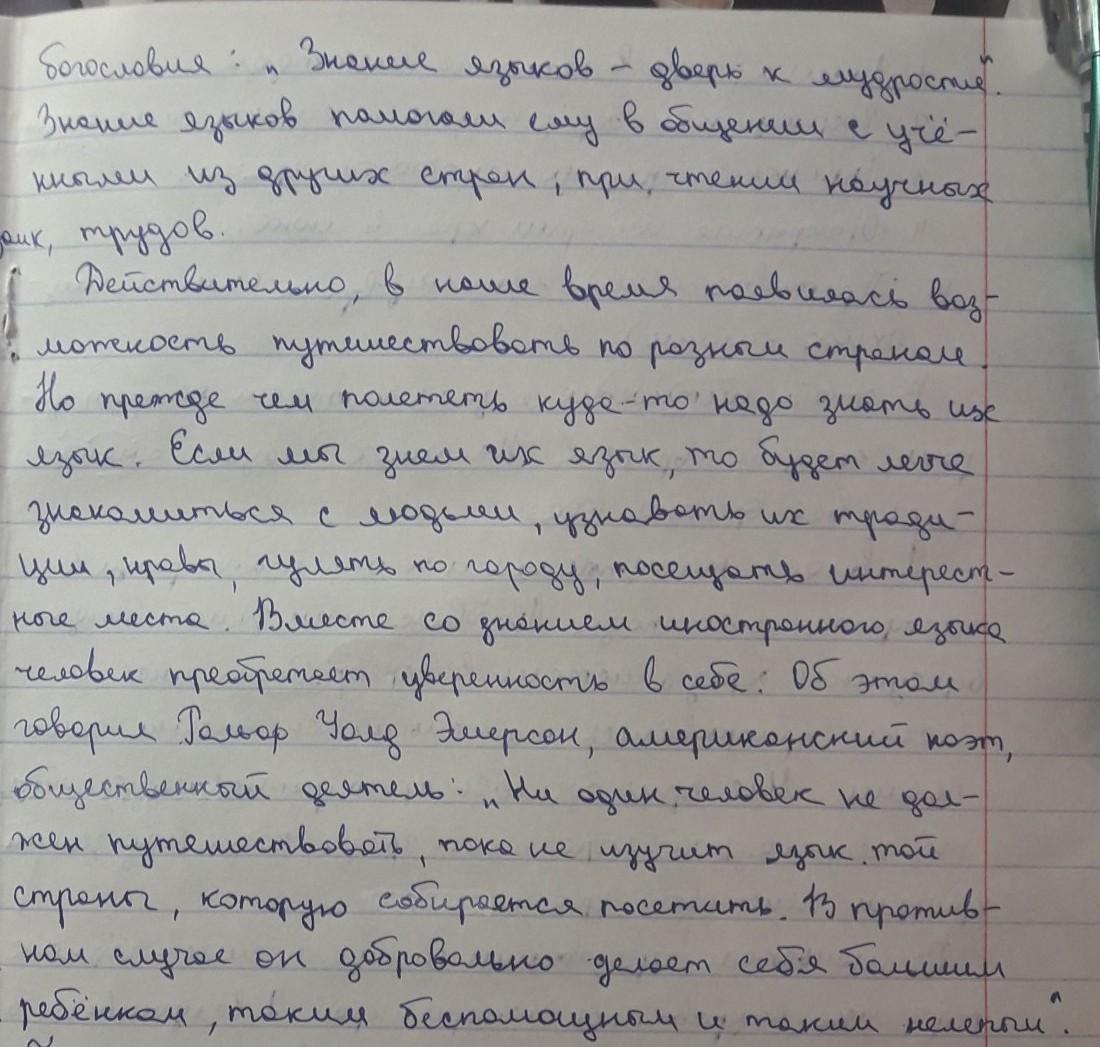 богословия: „Знание языков – дверь к мудрости".
Знание языков помогали ему в общении с учё-
нными из других стран, при чтении научных
трудов.
Действительно, в наше время появилась воз-
можность путешествовать по разным странам.
Но прежде чем полететь куда-то надо знать их
язык. Если мы знем их язык, то будет легче
знакомиться с людьми, узнавать их тради-
ции, нравы, гулять по городу, посещать интерест-
ные места. Вместе со знанием иностранного языка
человек преобретает уверенность в себе. Об этом
говорил Ральф Уолд Эмерсон, американский поэт,
общественный деятель: „Ни один человек не дол-
жен путешествовать, пока не изучит язык той
страны, которую собирается посетить. В против-
ном случае он добровольно делает себя большим
ребёнком, таким беспомощным и таким нелепым".